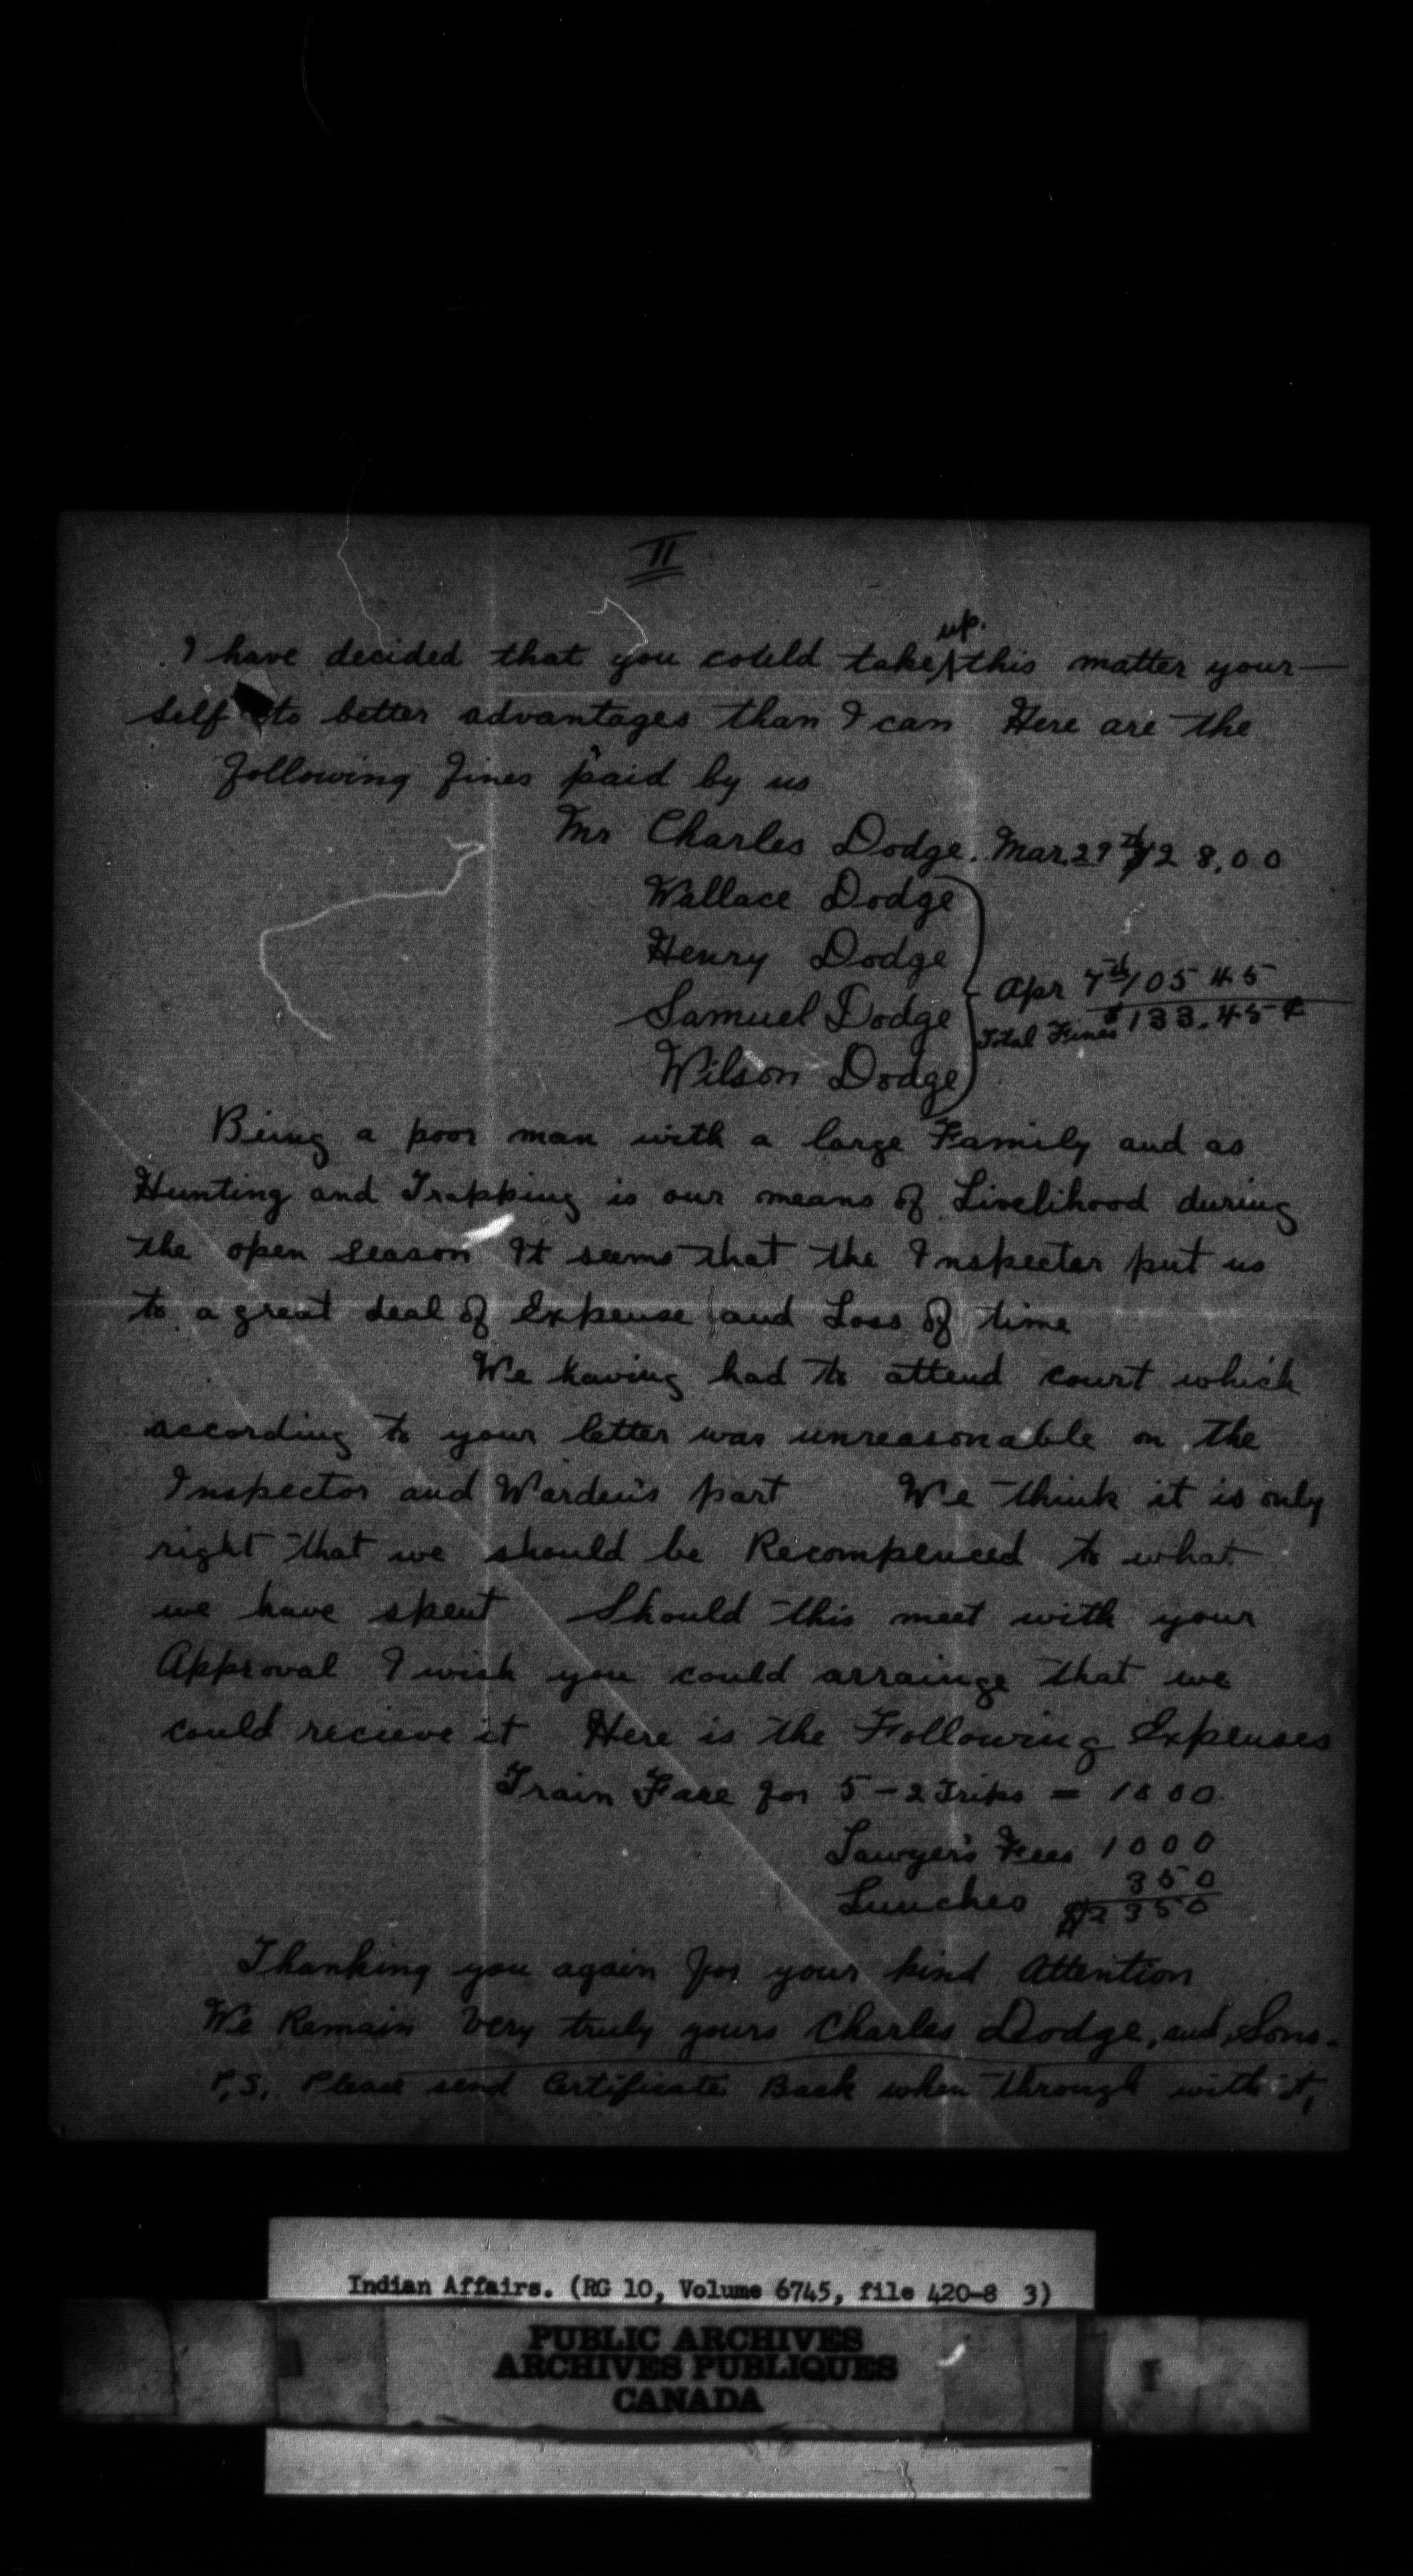 II
up.
I have decided that you could take this matter your—
self to better advantages than I can Here are the
following fines paid by us
Mr Charles Dodge. Mar 29th $28.00
Wallace Dodge
Henry Dodge
Samuel Dodge
Wilson Dodge
Apr 7th 105 45
Total Fines $133.45¢
Being a poor man with a large Family and as
Hunting and Trapping is our means of Livelihood during
the open season It seems that the Inspecter put us
to a great deal of Expense and Loss of time
We having had to attend court which
according to your letter was unreasonable on the
Inspector and Warden's part We think it is only
right that we should be Recompenced to what
we have spent Should this meet with your
Approval I wish you could arrainge that we
could recieve it Here is the Following Expenses
Train Fare for 5 – 2 Trips = 1000
Lawyer's Fees 1000
Lunches 350
$2350
Thanking you again for your kind Attention
We Remain Very truly yours Charles Dodge, and Sons.
P.S. Please send Certificate Back when through with it,
Indian Affairs. (RG 10, Volume 6745, file 420-8 3)
PUBLIC ARCHIVES
ARCHIVES PUBLIQUES
CANADA